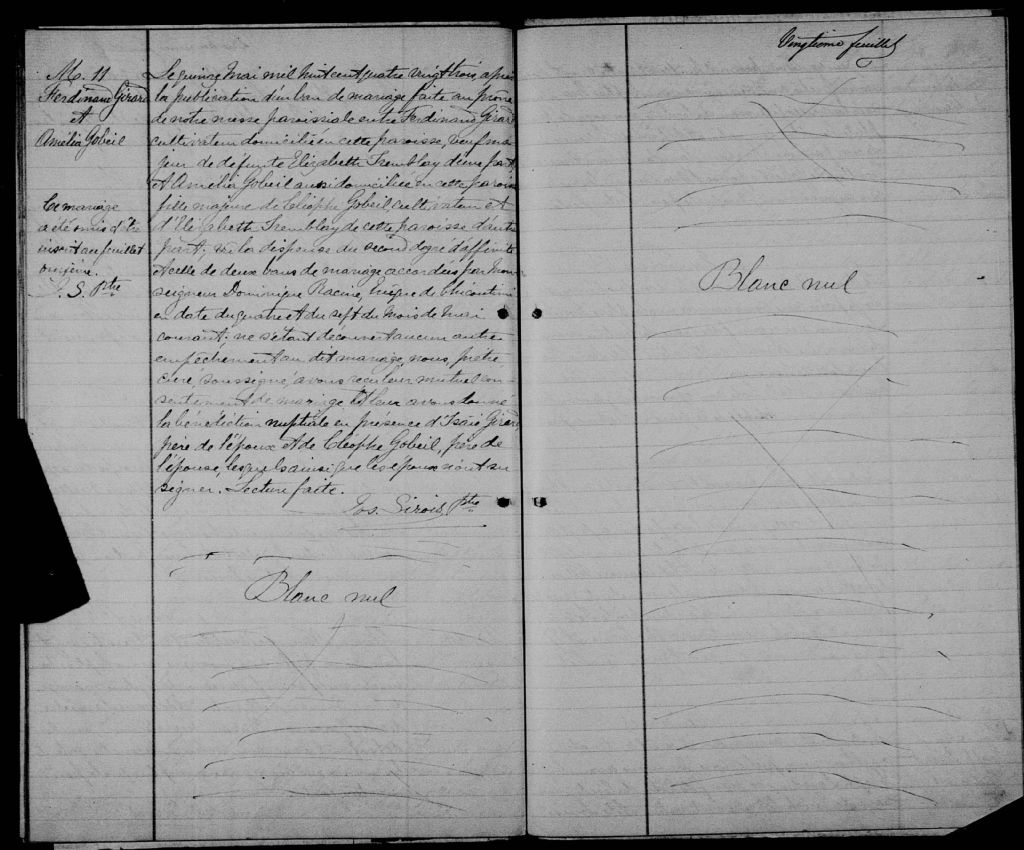 M. 11
Ferdinand Girard
et
Amélia Gobeil
Ce mariage
a été omis d'être
inscrit au feuillet
onzième.
J. S. Ptre
Le quinze Mai mil huit cent quatre vingt trois, après
la publication d'un ban de mariage faite au prône
de notre messe paroissiale entre Ferdinand Girard
cultivateur domicilié en cette paroisse, veuf ma-
jeur de défunte Elizabeth Tremblay d'une part,
et Amélia Gobeil aussi domiciliée en cette parois
fille majeure de Cléophe Gobeil, cultivateur et
d'Elizabeth Tremblay de cette paroisse d'autre
part, vu la dispense du second degré d'affinité
et celle de deux bans de mariage accordées par Mon
seigneur Dominique Racine, Evêque de Chicoutimi
en date du quatre et du sept du mois de Mai
courant; ne s'étant découvert aucun autre
empêchement au dit mariage, nous, prêtre
curé, soussigné, avons reçu leur mutuel con-
sentement de mariage et leur avons donné
la bénédiction nuptiale en présence d'Isaïe Girard
père de l'époux et de Cléophe Gobeil, père de
l'épouse, lesquels ainsi que les époux n'ont su
signer. Lecture faite.
Jos. Sirois, Ptre
Blanc nul
Vingtième feuillet
Blanc nul